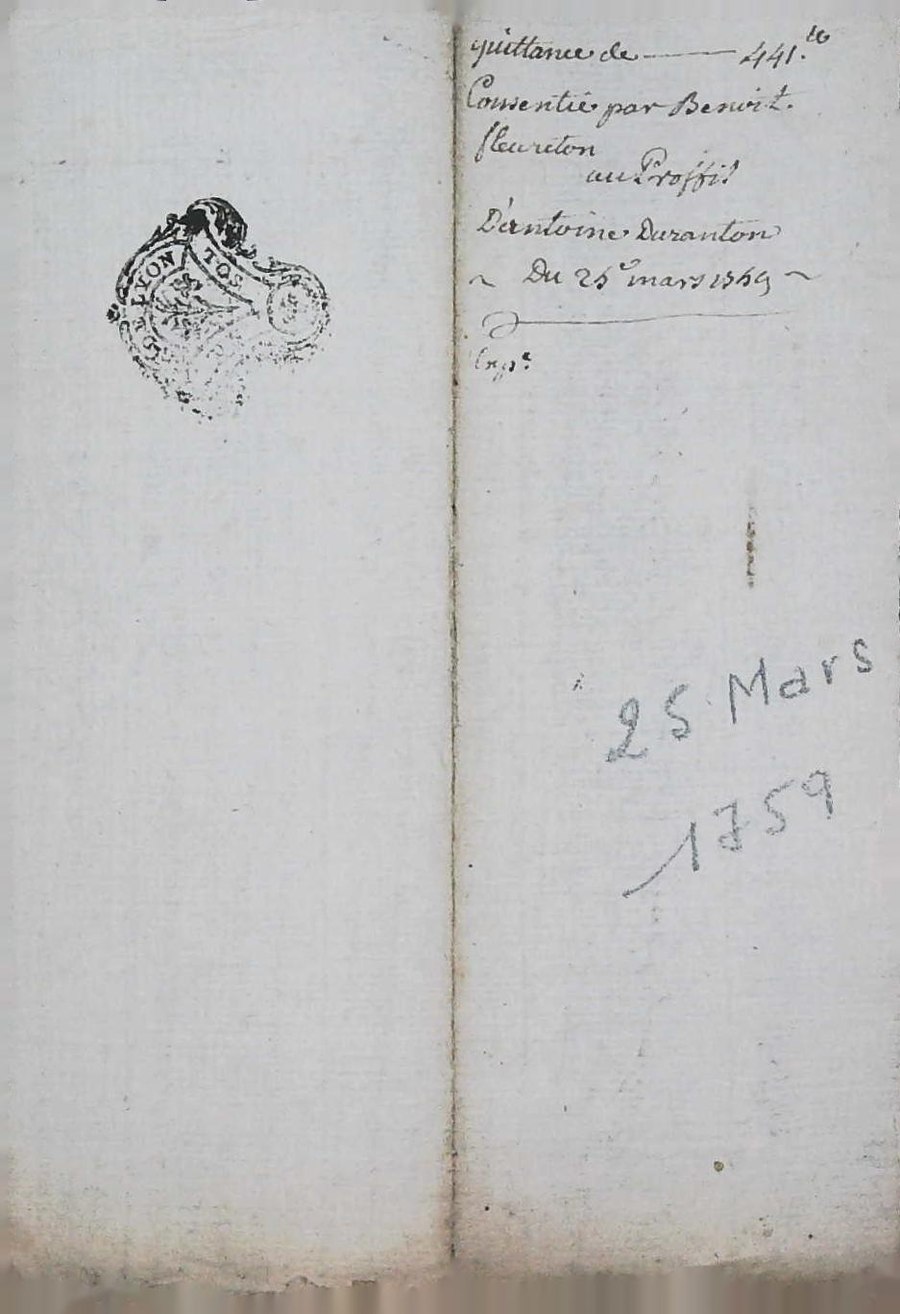 G. D. LYON
TOS
quittance de — 441.ᵗᵉ
Consentie par Benoit.
fleureton
au Proffit
D'antoine Duranton
~ Du 25ᵉ mars 1759 ~
Exp.ᵉ
25 Mars
1759